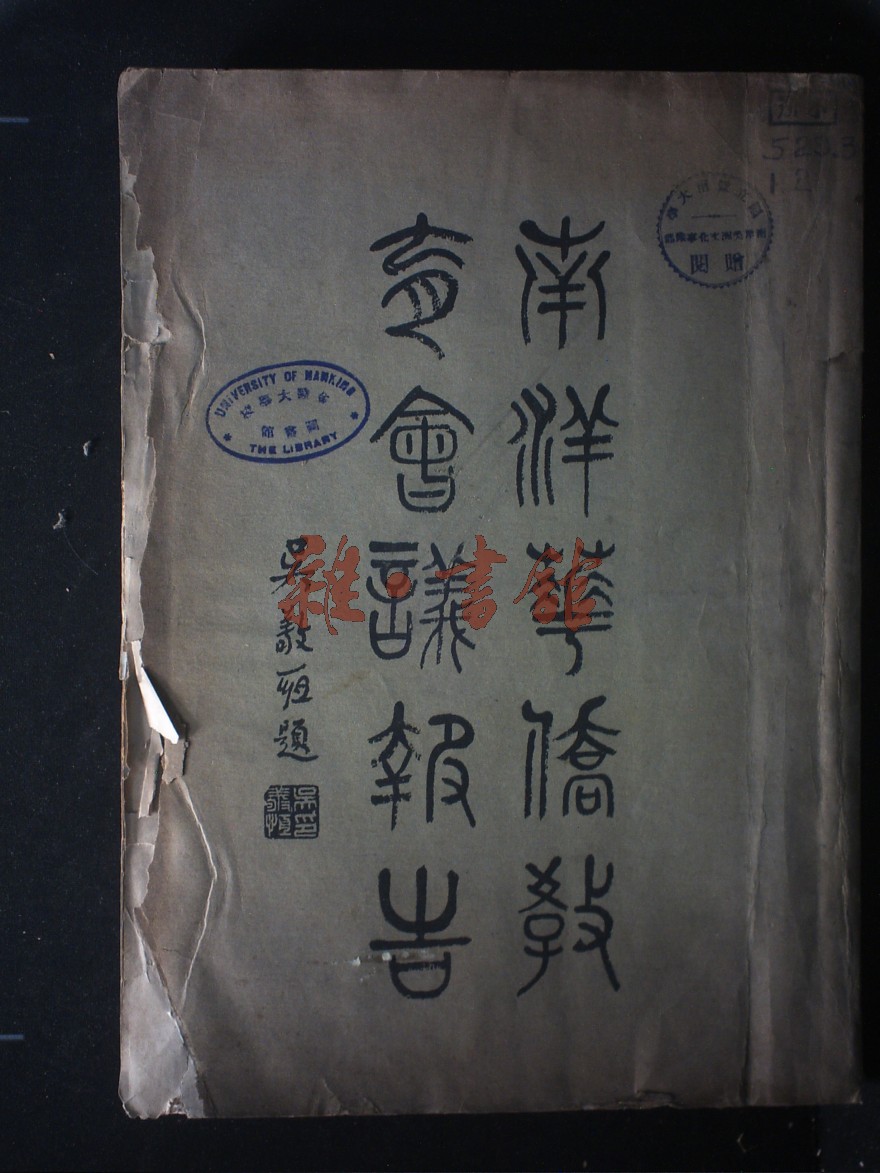 南洋華僑教
育會議報告
吳敬恆題
UNIVERSITY OF NANKING
金陵大學校
圖書館
THE LIBRARY
523.3
贈閱
雜·書館